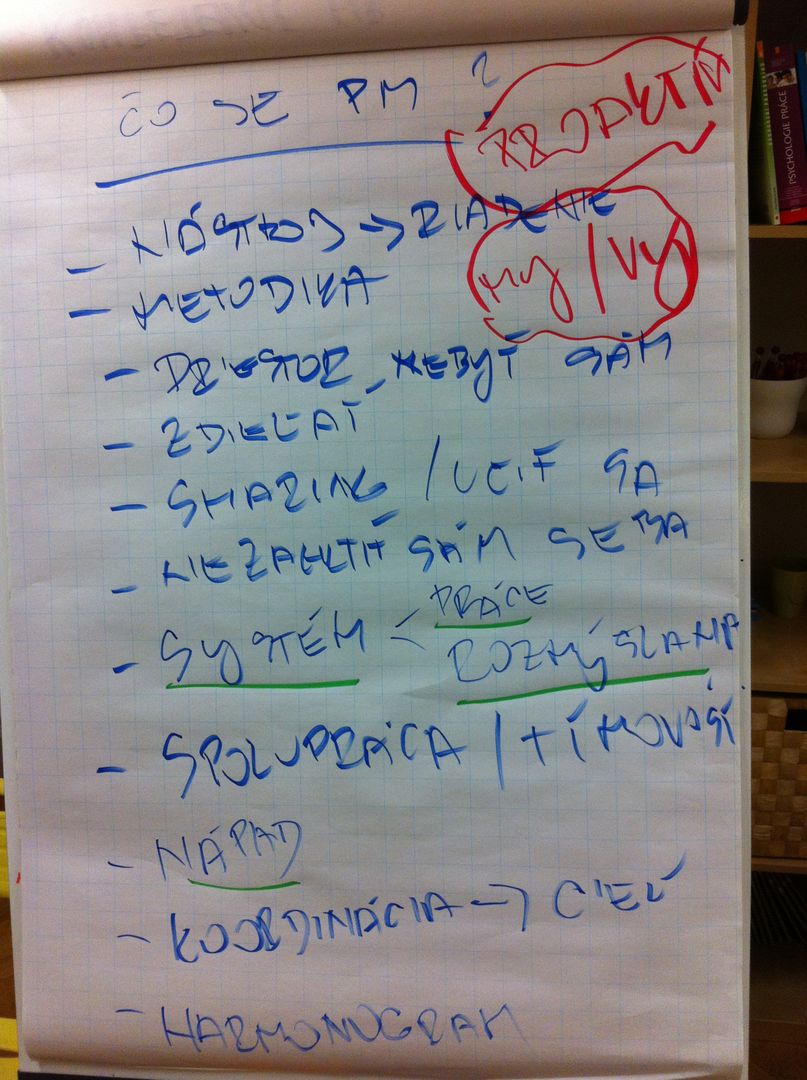 ČO JE PM ?
PROJEKTN
MY / VY
- NÁSTROJ → RIADENIE
- METODIKA
- PRIESTOR, NEBYŤ SÁM
- ZDIEĽAŤ
- SHARING / UČIŤ SA
- NEZAHLTIŤ SÁM SEBA
- SYSTÉM < PRÁCE
ROZMÝŠLANIA
- SPOLUPRÁCA / TÍMOVOSŤ
- NÁPAD
- KOORDINÁCIA → CIEĽ
- HARMONOGRAM
PSYCHOLOGIE PRÁCE